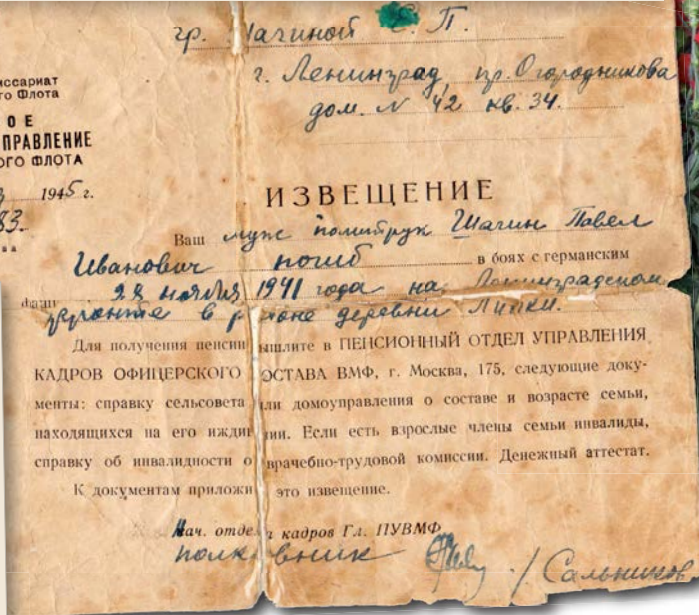 гр. Шагиной Е. П.
г. Ленинград, пр. Огородникова
дом. № 42 кв. 34.
иссариат
го Флота
ОЕ
ПРАВЛЕНИЕ
ОГО ФЛОТА
1945 г.
83.
ИЗВЕЩЕНИЕ
Ваш муж политрук Шагин Павел
Иванович погиб в боях с германским
28 ноября 1941 года на Ленинградском
фронте в районе деревни Липки.
Для получения пенсии вышлите в ПЕНСИОННЫЙ ОТДЕЛ УПРАВЛЕНИЯ
КАДРОВ ОФИЦЕРСКОГО СОСТАВА ВМФ, г. Москва, 175, следующие доку-
менты: справку сельсовета или домоуправления о составе и возрасте семьи,
находящихся на его иждивении. Если есть взрослые члены семьи инвалиды,
справку об инвалидности от врачебно-трудовой комиссии. Денежный аттестат.
К документам приложить это извещение.
Нач. отдела кадров Гл. ПУВМФ
полковник / Сальников